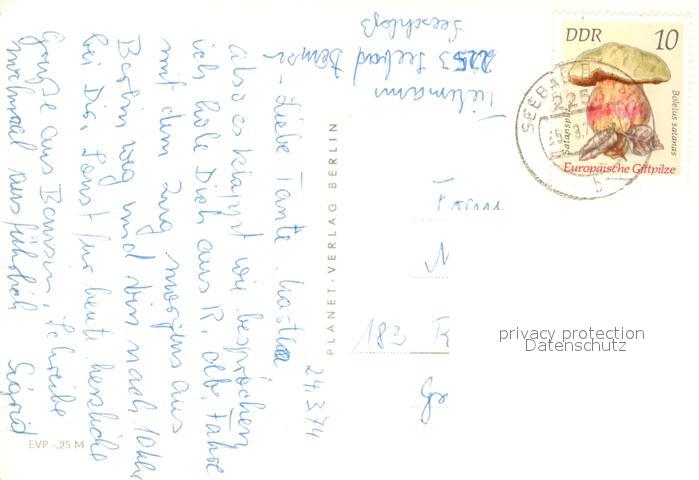 Tielmann
2253 Seebad Bansin
Seeschloß
24.3.74
- Liebe Tante
also es klappt wie besprochen
ich hole Dich aus R. ab. Fahre
mit dem Zug morgens aus
Berlin weg und bin nach
bei Dir. Sonst für heute herzliche
Grüße aus Bansin. Schreibe
nochmal ausführlich Sigrid
PLANET-VERLAG BERLIN
EVP -,25 M
DDR 10
Satanspilz
Boletus satanas
Europäische Giftpilze
SEEBAD
225
Frau
183
privacy protection
Datenschutz